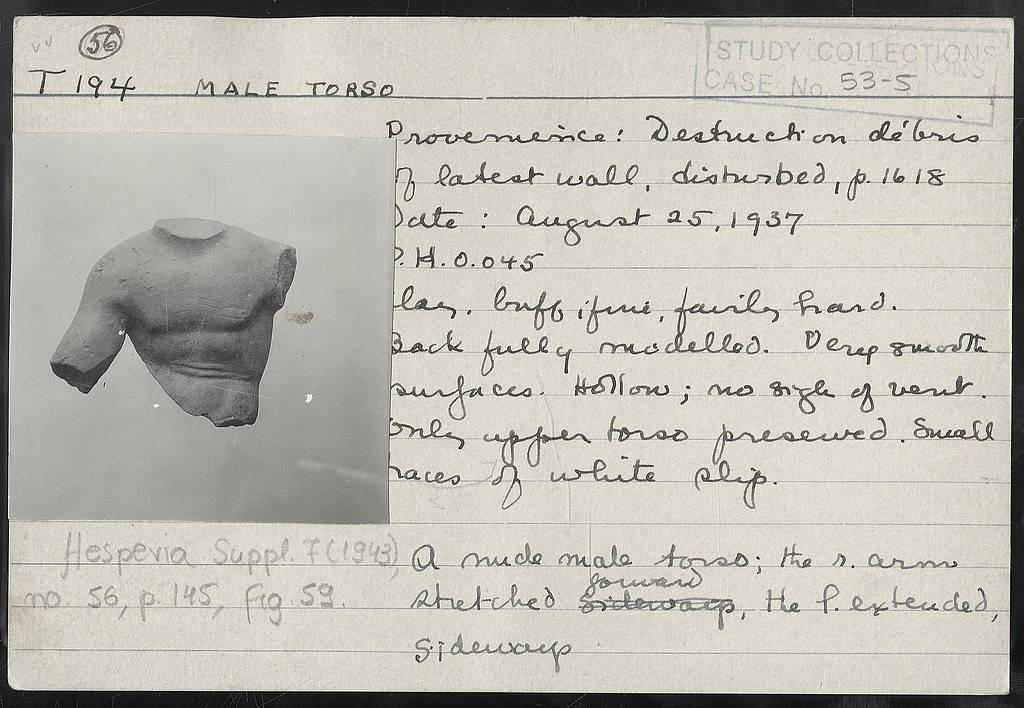 56
T 194 MALE TORSO
STUDY COLLECTIONS
CASE No. 53-5
Provenience: Destruction débris
of latest wall, disturbed, p. 1618
Date: August 25, 1937
P.H. 0.045
Clay, buff, fine, fairly hard.
Back fully modelled. Very smooth
surfaces. Hollow; no sign of vent.
Only upper torso preserved. Small
traces of white slip.
Hesperia Suppl. 7 (1943)
no. 56, p. 145, fig. 59.
A nude male torso; the r. arm
forward
stretched sideways, the l. extended,
sideways